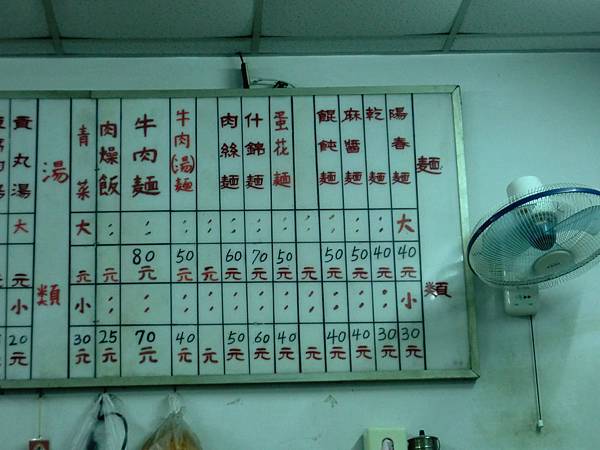 麵類
陽春麵大40元小30元
乾麵：40元：30元
麻醬麵：50元：40元
餛飩麵：50元：40元
元元
蛋花麵：50元：40元
什錦麵：70元：60元
肉絲麵：60元：50元
：元：元
牛肉(湯)麵：50元：40元
牛肉麵：80元：70元
肉燥飯：元：25元
青菜大元小30元
湯類
貢丸湯大元小20元